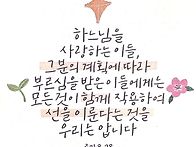 하느님을
사랑하는 이들,
그분의 계획에 따라
부르심을 받은 이들에게는
모든 것이 함께 작용하여
선을 이룬다는 것을
우리는 압니다
로마 8,28